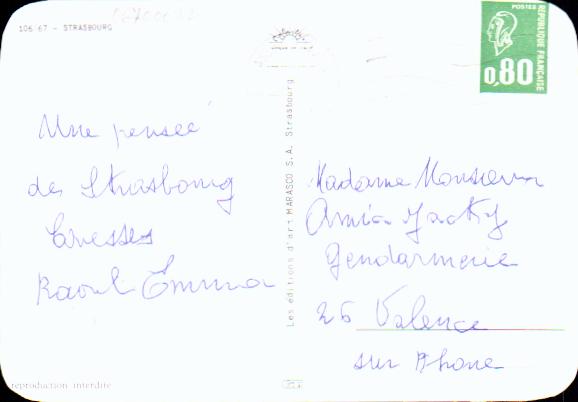 106 67 - STRASBOURG
Une pensée
de Strasbourg
Raoul Emma
reproduction interdite
Les éditions d'art MARASCO S.A. Strasbourg
POSTES
RÉPUBLIQUE FRANÇAISE
0,80
Madame Monsieur
Jacky
Gendarmerie
26 Valence
sur Rhone